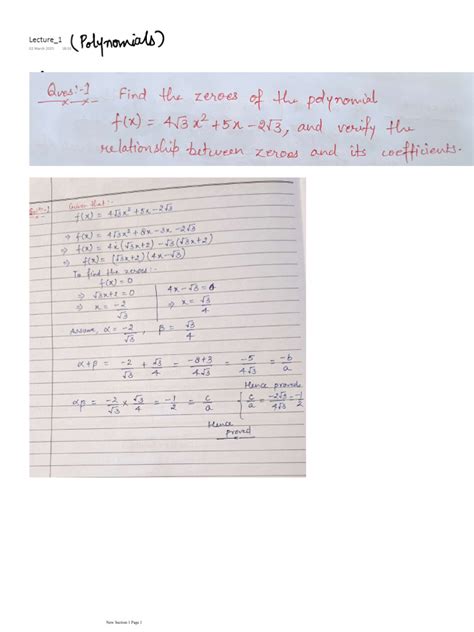 Lecture_1 (Polynomials)
02 March 2025
Ques:-1 Find the zeroes of the polynomial
f(x) = 4√3x² + 5x - 2√3, and verify the
relationship between zeroes and its coefficients.
Given that:-
f(x) = 4√3x² + 5x - 2√3
⇒ f(x) = 4√3x² + 8x - 3x - 2√3
⇒ f(x) = 4x(√3x+2) - √3(√3x+2)
⇒ f(x) = (√3x+2)(4x-√3)
To find the zeroes:-
f(x) = 0
⇒ √3x+2 = 0 | 4x-√3 = 0
⇒ x = -2/√3 | ⇒ x = √3/4
Assume, α = -2/√3, β = √3/4
α+β = -2/√3 + √3/4 = -8+3/4√3 = -5/4√3 = -b/a
Hence proved
αβ = -2/√3 × √3/4 = -1/2 = c/a { c/a = -2√3/4√3 = -1/2
Hence
proved
New Section 1 Page 1